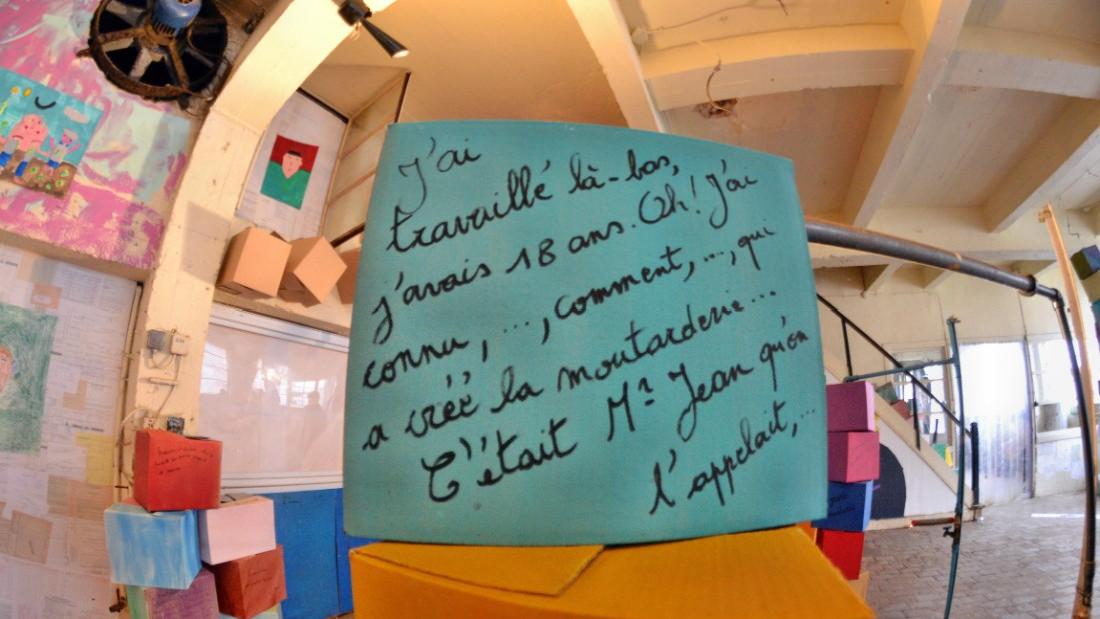 J'ai
travaillé là-bas,
j'avais 18 ans. Oh! J'ai
connu, ..., comment, ..., qui
a créé la moutarderie...
C'était Mr Jean qu'on
l'appelait,...